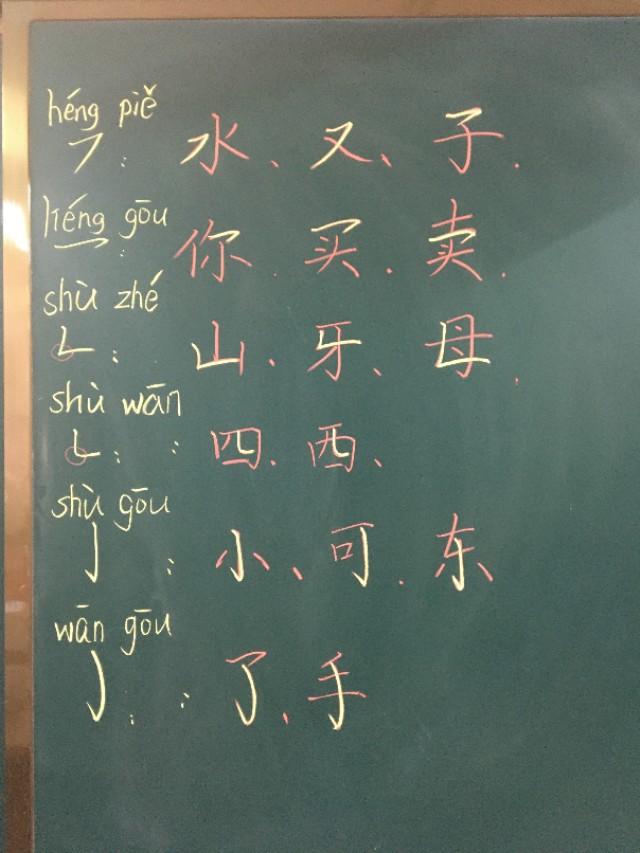 héng piě
㇇: 水、又、子.
héng gōu
乛: 你.买.卖.
shù zhé
𠃊: 山.牙、母.
shù wān
㇄: : 四.西、
shù gōu
亅 : 小、可.东
wān gōu
㇁: : 了、手